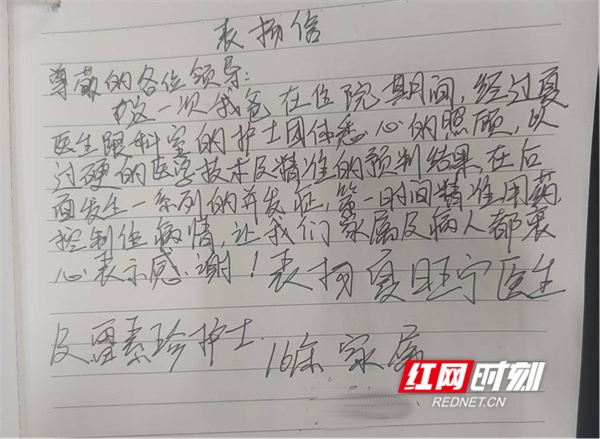 表扬信
尊敬的各位领导:
这一次我爸在住院期间,经过夏
医生跟科室的护士团体悉心的照顾,以
过硬的医学技术及精准的预判结果在后
面发生一系列的并发症,第一时间精准用药
控制住病情,让我们家属及病人都衷
心表示感谢!表扬夏旺宁医生
及 素珍护士
16床 家属
红网时刻
REDNET.CN